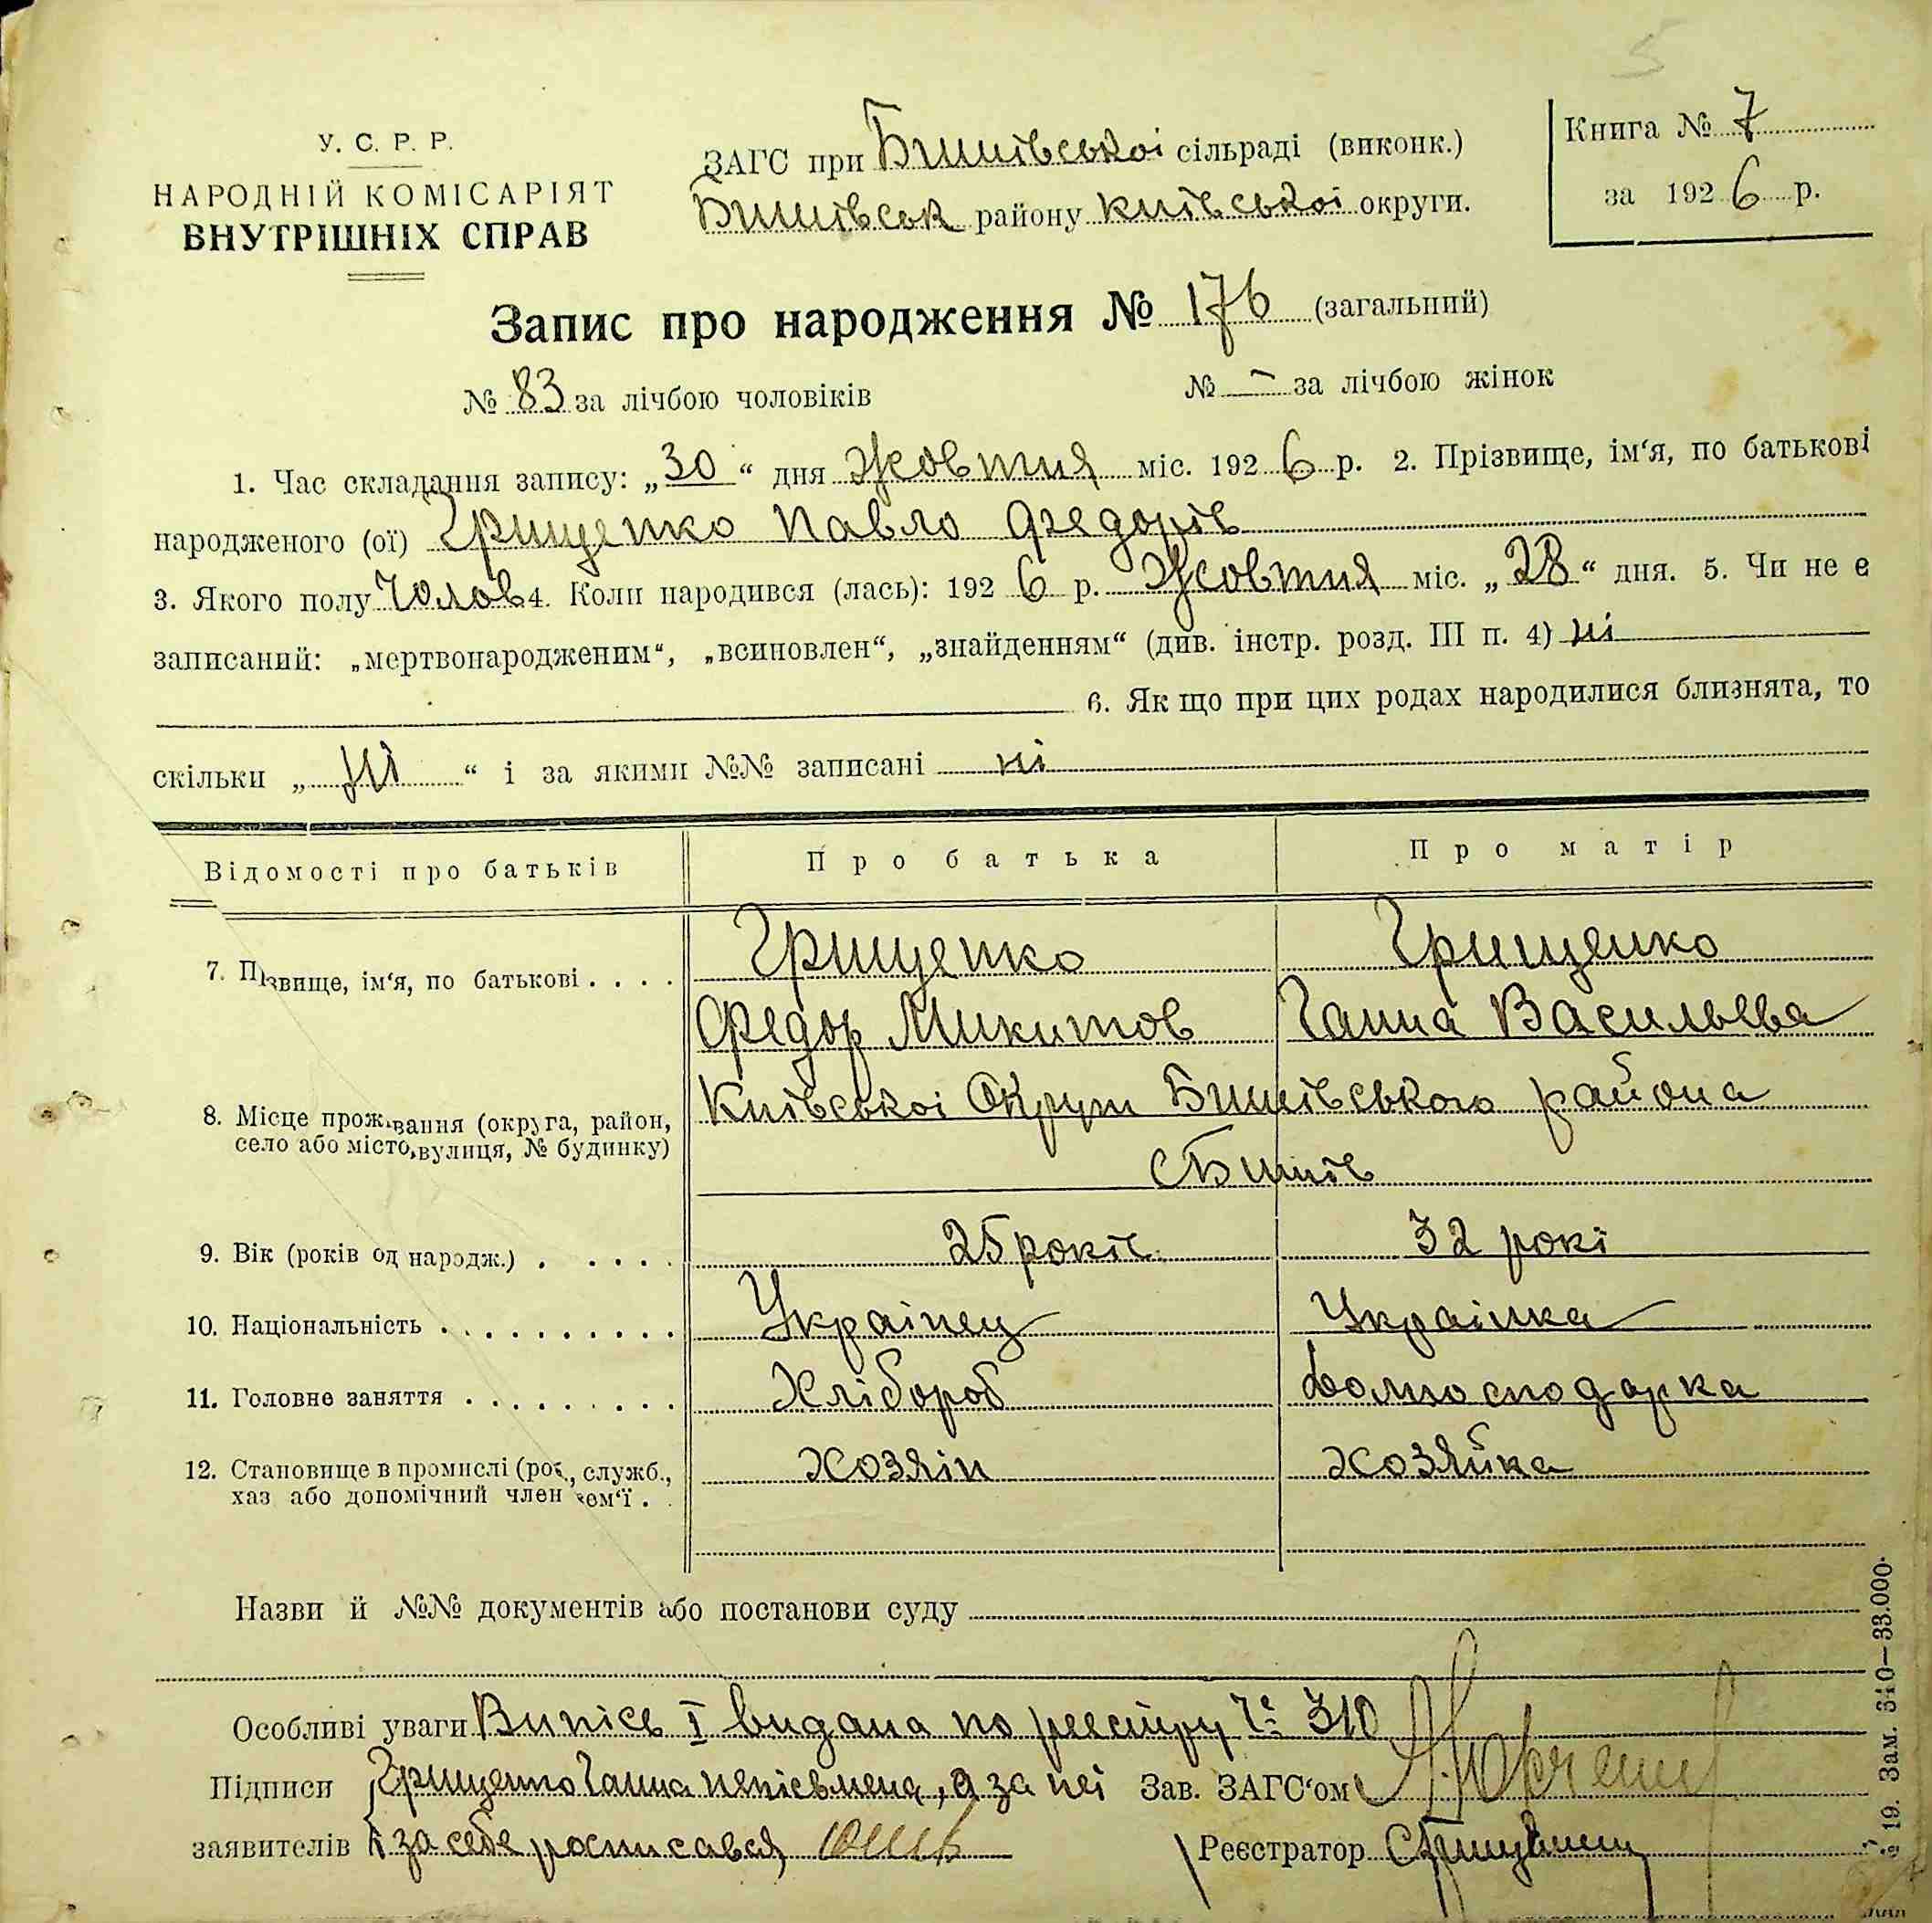 5
У. С. Р. Р.
НАРОДНІЙ КОМІСАРІЯТ
ВНУТРІШНІХ СПРАВ
ЗАГС при Бишівської сільраді (виконк.)
Бишівськ району київської округи.
Книга № 7
за 1926 р.
Запис про народження № 176 (загальний)
№ 83 за лічбою чоловіків № — за лічбою жінок
1. Час складання запису: „30“ дня Жовтня міс. 1926 р. 2. Прізвище, ім‘я, по батькові
народженого (ої) Грищенко Павло Федорів
3. Якого полу Чолов 4. Коли народився (лась): 1926 р. Жовтня міс. „28“ дня. 5. Чи не є
записаний: „мертвонародженим“, „всиновлен“, „знайденням“ (див. інстр. розд. III п. 4) ні
6. Як що при цих родах народилися близнята, то
скільки „ні“ і за якими №№ записані ні
Відомості про батьків Про батька Про матір
7. Прізвище, ім‘я, по батькові . . . . Грищенко Грищенко
Федор Микитов Ганна Васильєва
8. Місце проживання (округа, район, село або місто, вулиця, № будинку) Київської Округи Бишівського района
с Бишів
9. Вік (років од народж.) . . . . . 25 років 32 рокі
10. Національність . . . . . . . . . . Українец Українка
11. Головне заняття . . . . . . . . . Хлібороб Домогосподарка
12. Становище в промислі (роб., служб., хаз або допомічний член сем‘ї . . хозяін хозяйка
Назви й №№ документів або постанови суду
Особливі уваги Випісь I видана по реєстру № 310
Підписи Грищенко Ганна непісьмена, а за неї Зав. ЗАГС‘ом
заявителів і за себе росписався Реєстратор
№ 19. Зам. 310—33.000.